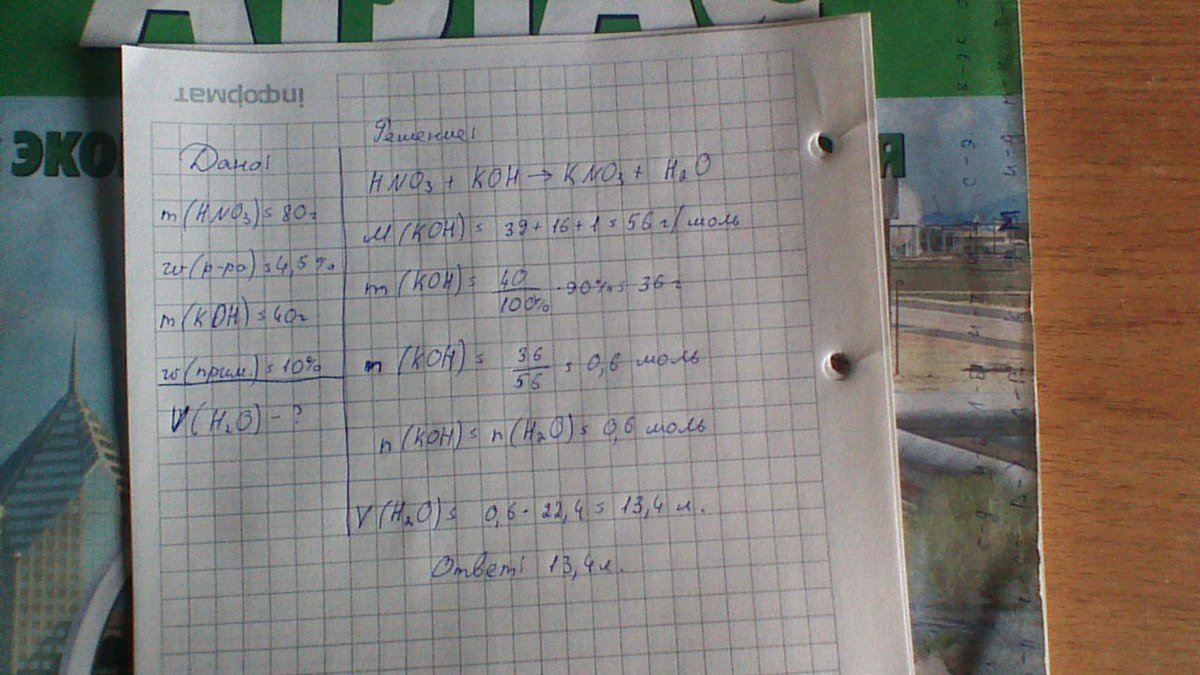 АТЛАС
інформат
ЭКО
Я
Дано:
m(HNO₃) = 80г
w(р-ра) = 4,5%
m(KOH) = 40г
w(прим.) = 10%
V(H₂O) - ?
Решение:
HNO₃ + KOH → KNO₃ + H₂O
M(KOH) = 39 + 16 + 1 = 56 г/моль
m(KOH) = 40/100% · 90% = 36 г
n(KOH) = 36/56 = 0,6 моль
n(KOH) = n(H₂O) = 0,6 моль
V(H₂O) = 0,6 · 22,4 = 13,4 л.
Ответ: 13,4л.